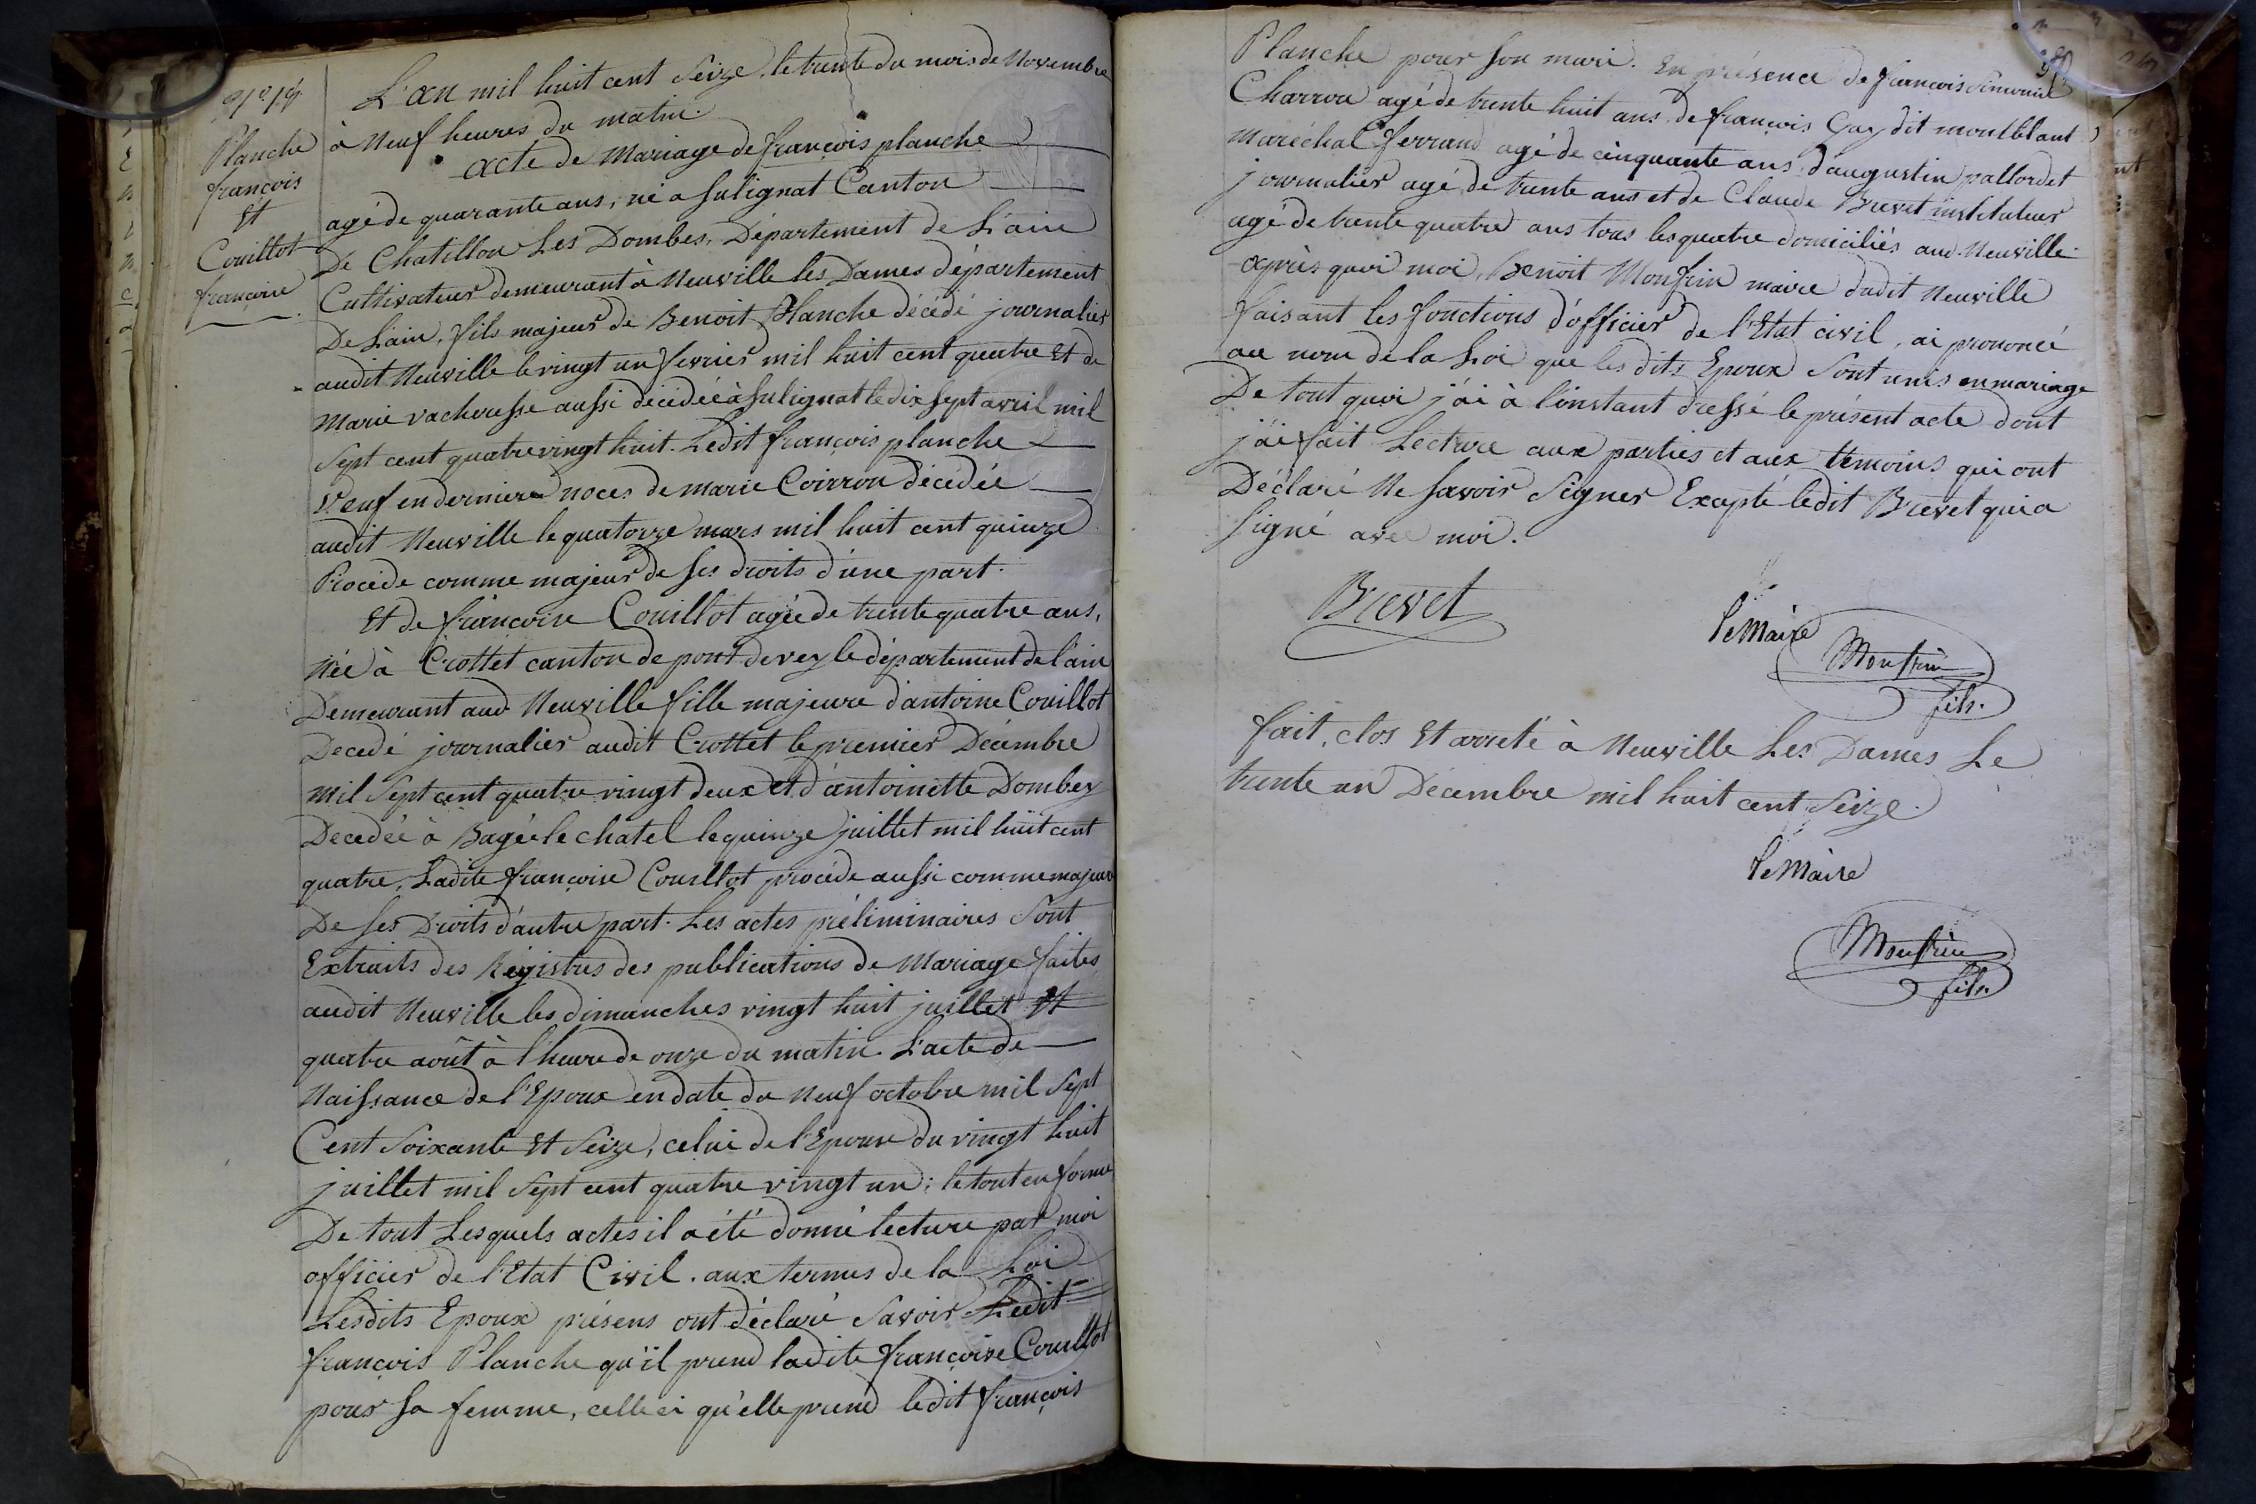 N° 18
Planche
françois
Et
Couillot
françoise
L'an mil huit cent Seize, le trente du mois de Novembre
à Neuf heures du matin.
acte de Mariage de françois planche
agé de quarante ans, né a Sulignat Canton
De Chatillon Les Dombes, Département de L'ain
Cultivateur demeurant à Neuville les Dames département
De L'ain, fils majeur de Benoit Planche décédé journalier
audit Neuville le vingt un fevrier mil huit cent quatre Et de
Marie vacheresse aussi décédée à Sulignat le dix Sept avril mil
Sept cent quatre vingt huit. Ledit françois planche
Veuf en derniere noces de Marie Coirron décédée
audit Neuville le quatorze mars mil huit cent quinze
Procède comme majeur de Ses droits d'une part.
Et de françoise Couillot agée de trente quatre ans,
Née à Crottet canton de pont de veyle département de l'ain
Demeurant aud Neuville fille majeure d'antoine Couillot
Decedé journalier audit Crottet le premier Décembre
mil Sept cent quatre vingt deux et d'antoinette Dombey
Decedée à Bagé le chatel le quinze juillet mil huit cent
quatre, Ladite françoise Couillot procède aussi comme majeure
De Ses Droits d'autre part. Les actes préliminaires Sont
Extraits des Régistres des publications de Mariage faites
audit Neuville les dimanches vingt huit juillet Et
quatre août à l'heure de onze du matin. L'acte de
Naissance de l'Epoux en date du Neuf octobre mil Sept
Cent Soixante Et Seize, celui de l'Epouse du vingt huit
juillet mil Sept cent quatre vingt un; le tout en forme
De tout Lesquels actes il a été donné lecture par moi
officier de l'Etat Civil. aux termes de la Loi
Lesdits Epoux présens ont déclaré Savoir Ledit
françois Planche qu'il prend ladite françoise Couillot
pour Sa femme, celle ci qu'elle prend ledit françois
Planche pour Son mari. En présence de françois
Charron agé de trente huit ans, de françois Guy dit montblant
Maréchal ferrand agé de cinquante ans, d'augustin pallordet
journalier agé de trente ans et de Claude Brevet instituteur
agé de trente quatre ans tous les quatre domiciliés aud. Neuville
après quoi moi, Benoit Monfrin maire dudit Neuville
faisant les fonctions d'officier de l'Etat civil, ai prononcé
au nom de la Loi que les dits Epoux Sont unis en mariage
De tout quoi j'ai à l'instant dressé le présent acte dont
j'ai fait Lecture aux parties et aux témoins qui ont
Déclaré Ne Savoir Signer Excepté ledit Brevet qui a
Signé avec moi.
Brevet
Le Maire
Monfrin
fils.
fait, clos Et arreté à Neuville Les Dames Le
trente un Décembre mil huit cent Seize.
Le Maire
Monfrin
fils